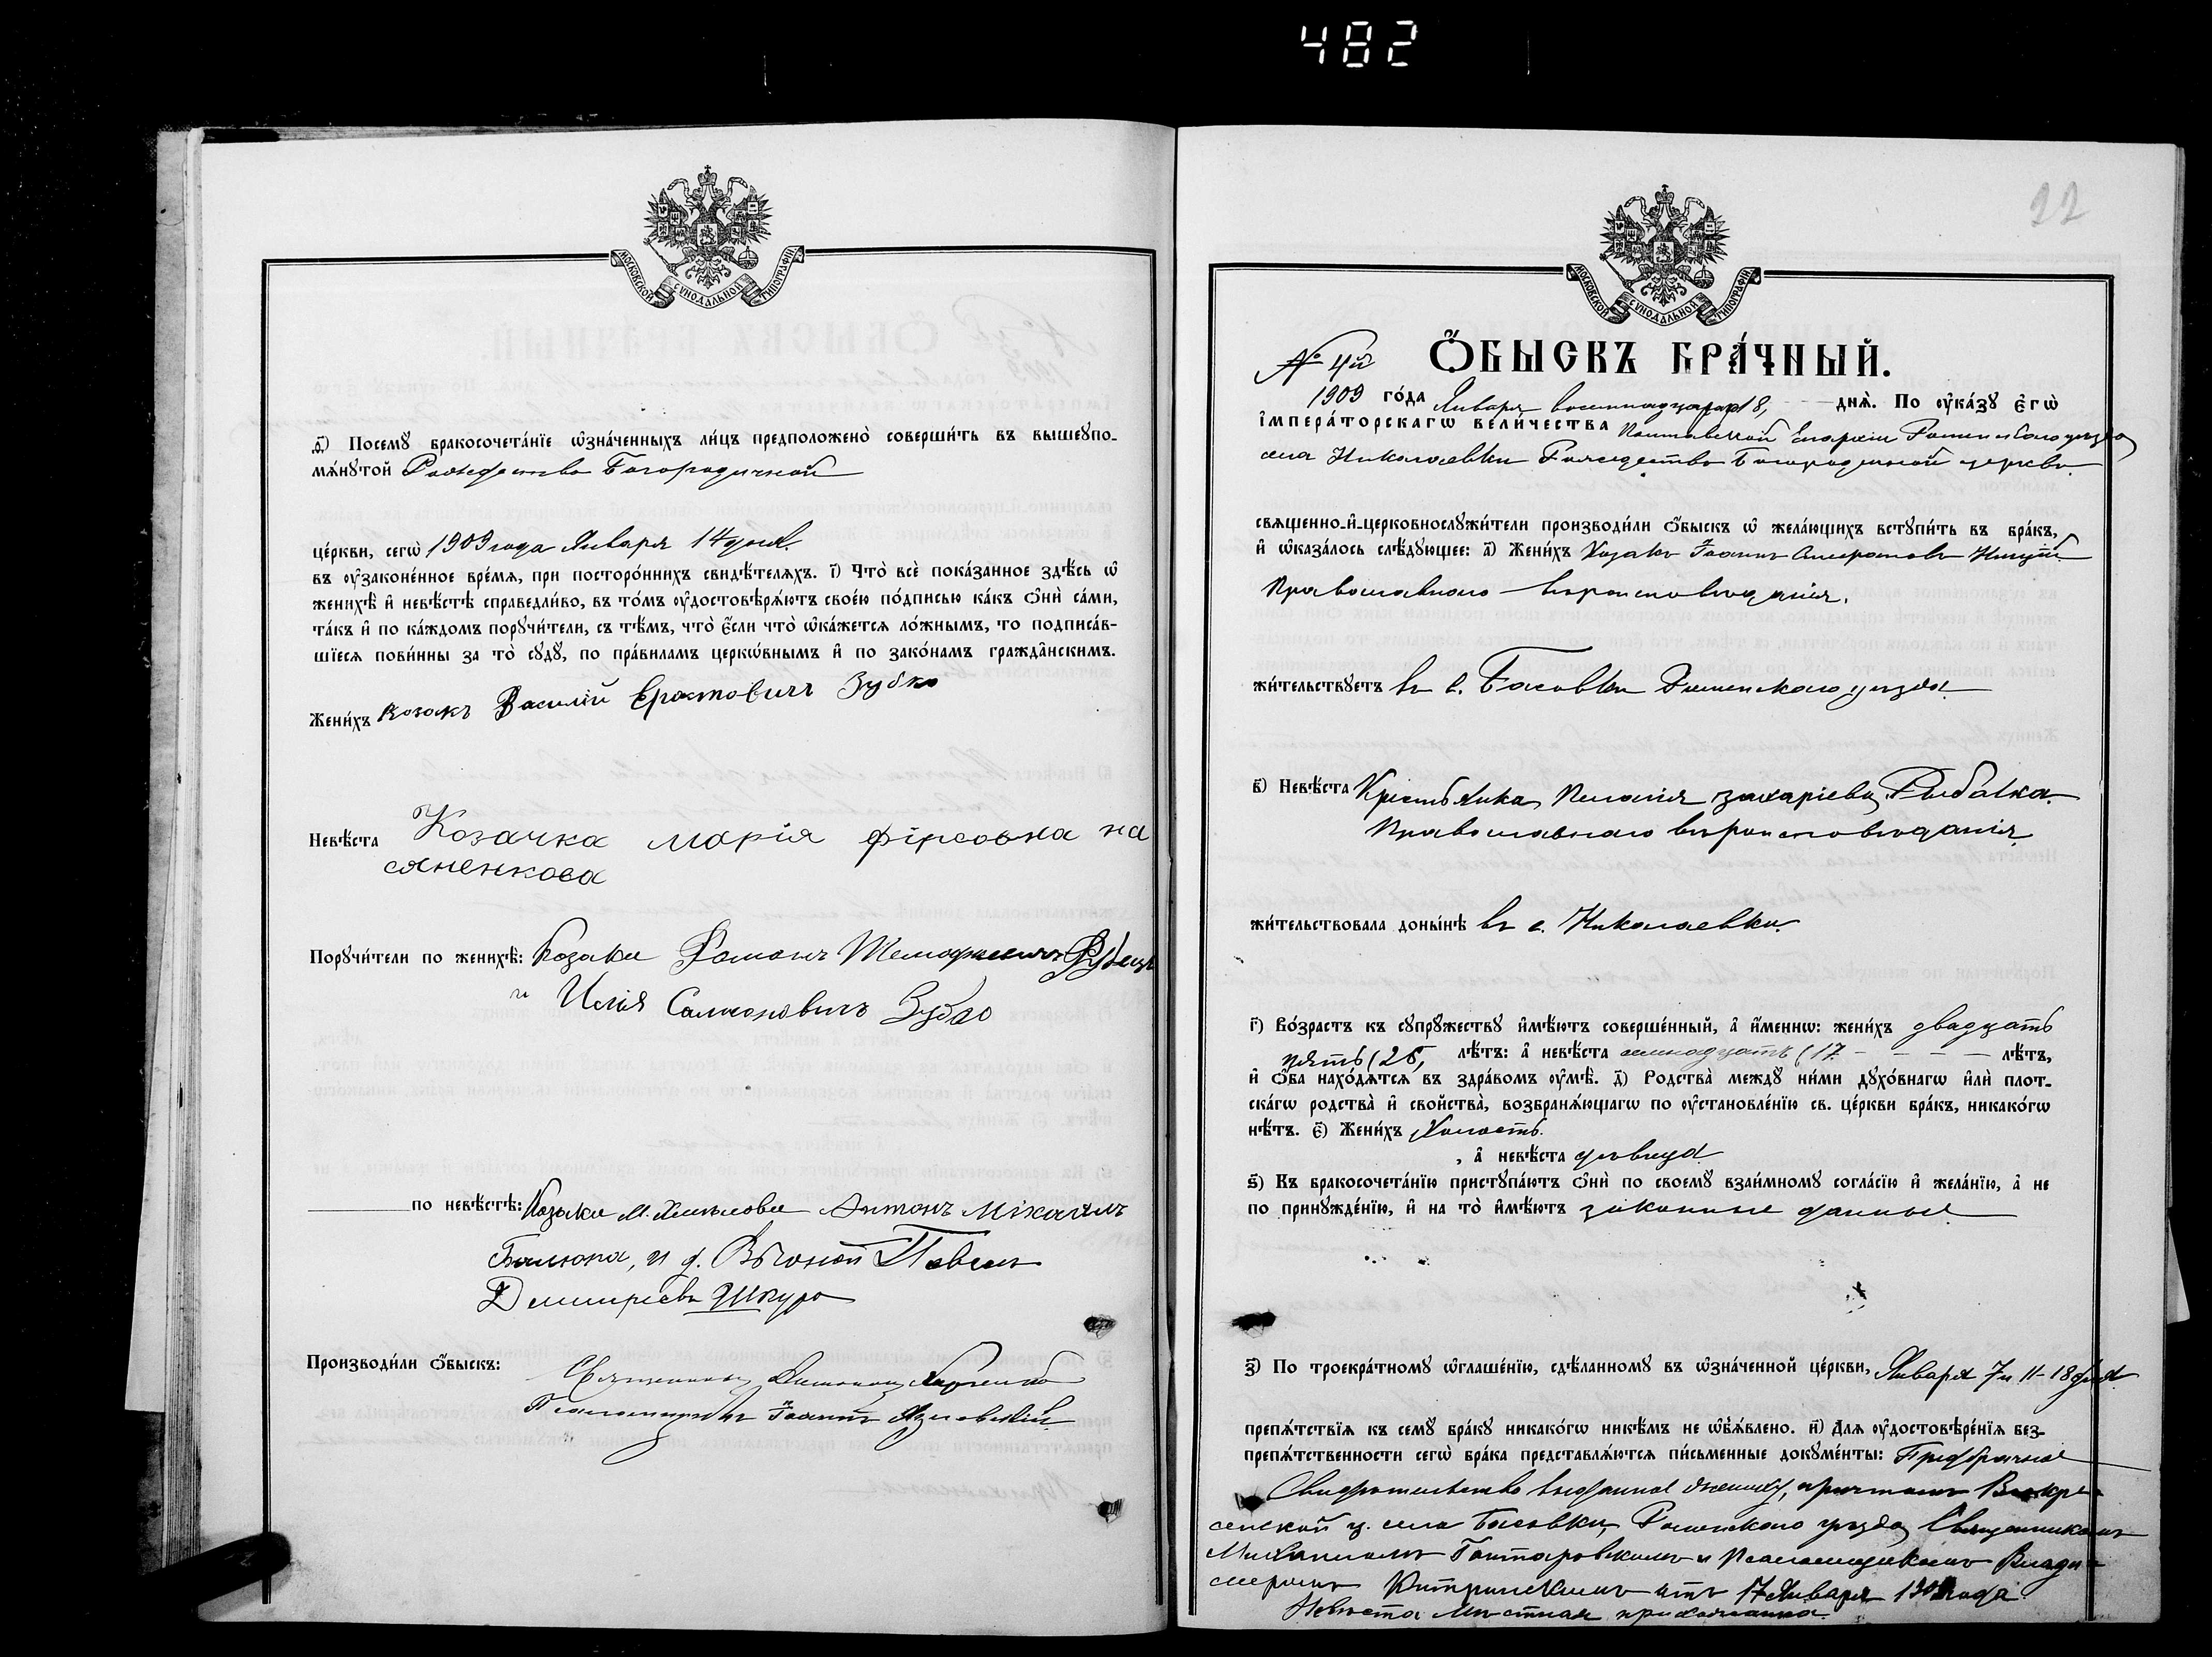 482
МОСКОВСКОЙ СѴНОДАЛЬНОЙ ТИПОГРАФІИ.
д҃) Посемꙋ бракосочета́нїе ѡ҆зна́ченныхъ ли́цъ предположено̀ соверши́ть въ вышеупо-
мѧ́нꙋтой Рождество Богородичной
це́ркви, сегѡ̀ 1909 года Января 14 дня.
въ ᲂу҆законе́нное вре́мѧ, при посторо́ннихъ свидѣ́телѧхъ. і҃) Что̀ всѐ пока́занное здѣ́сь ѡ҆
женихѣ̀ и҆ невѣ́стѣ справедли́во, въ то́мъ ᲂу҆достовѣрѧ́ютъ свое́ю по́дписью ка́къ ѻ҆нѝ са́ми,
та́къ и҆ по ка́ждомъ порꙋчи́тели, съ тѣ́мъ, что̀ є҆́сли что̀ ѡ҆ка́жетсѧ ло́жнымъ, то подписа́в-
шїесѧ пови́нны за то̀ сꙋдꙋ̀, по пра́виламъ церкѡ́внымъ и҆ по зако́намъ гражда̂нскимъ.
Жени́хъ Козакъ Василій Ератовичъ Зубко
Невѣ́ста Козачка Марія Фірсовна На
сяненкова
Порꙋчи́тели по женихѣ̀: Козаки Романъ
и Илія Самсоновичъ Зубко
по невѣ́стѣ: Козаки м. Хмѣлова Антонъ Міхаилъ
Балюра, и д. Вѣтовой Павелъ
Димитріевъ Шкура
Производи́ли ѻ҆́быскъ: Священникъ
Псаломщикъ Іоаннъ
22
МОСКОВСКОЙ СѴНОДАЛЬНОЙ ТИПОГРАФІИ.
№ 4й ѺБЫСКЪ БРА́ЧНЫЙ.
1909 го́да Января восемнадцатаго 18, днѧ̀. По ᲂу҆ка́зꙋ Є҆гѡ̀
І҆мпера́торскагѡ Вели́чества Полтавской Епархіи Роменскаго уѣзда
села Николаевки Рождество Богородичной церкви
свѧщенно-и҆-церковнослꙋжи́тели производи́ли ѻ҆́быскъ ѡ҆ жела́ющихъ встꙋпи́ть въ бра́къ,
и҆ ѡ҆каза́лось слѣ́дꙋющее: а҃) Жени́хъ Козакъ Іоаннъ
Православнаго вѣроисповѣданія.
жи́тельствꙋетъ въ с. Басовки Роменскаго уѣзда.
в҃) Невѣ́ста Крестьянка Пелагія Захаріева Рыбалка.
Православнаго вѣроисповѣданія.
жи́тельствовала доны́нѣ въ с. Николаевки.
г҃) Во́зрастъ къ сꙋпрꙋ́жествꙋ и҆мѣ́ютъ соверше́нный, а҆ и҆́менно: жени́хъ двадцать
пять (25, лѣ́тъ: а҆ невѣ́ста семнадцать (17 лѣ́тъ,
и҆ ѻ҆́ба нахо́дѧтсѧ въ здра́вомъ ᲂу҆мѣ̀. д҃) Родства̀ междꙋ ни́ми дꙋхо́внагѡ и҆лѝ плот-
ска́гѡ родства̀ и҆ сво́йства̀, возбранѧ́ющагѡ по ᲂу҆становле́нїю св. це́ркви бра́къ, никако́гѡ
нѣ́тъ. є҃) Жени́хъ Холостъ.
, а҆ невѣ́ста дѣвица
ѕ҃) Къ бракосочета́нїю пристꙋпа́ютъ ѻ҆нѝ по своемꙋ̀ взаи́мномꙋ согла́сїю и҆ жела́нїю, а҆ не
по принꙋжде́нїю, и҆ на то̀ и҆мѣ́ютъ законные данные
з҃) По троекра́тномꙋ ѡ҆глаше́нїю, сдѣ́ланномꙋ въ ѡ҆зна́ченной це́ркви, Января 7 и 11-18 дня
препѧ́тствїѧ къ семꙋ̀ бра́кꙋ никако́гѡ никѣ́мъ не ѡ҆б̾ѧ́влено. и҃) Длѧ ᲂу҆достовѣре́нїѧ без-
препѧ́тственности сегѡ̀ бра́ка представлѧ́ютсѧ пи́сьменные докꙋме́нты: Предбрачное
Свидѣтельство выданное жениху, причтомъ Воскре-
сенской ц. села Басовки, Роменскаго уѣзда Священникомъ
Михаиломъ и Псаломщикомъ Влади-
меромъ отъ 17 Января 1909 года.
Невѣста мѣстная прихожанка.